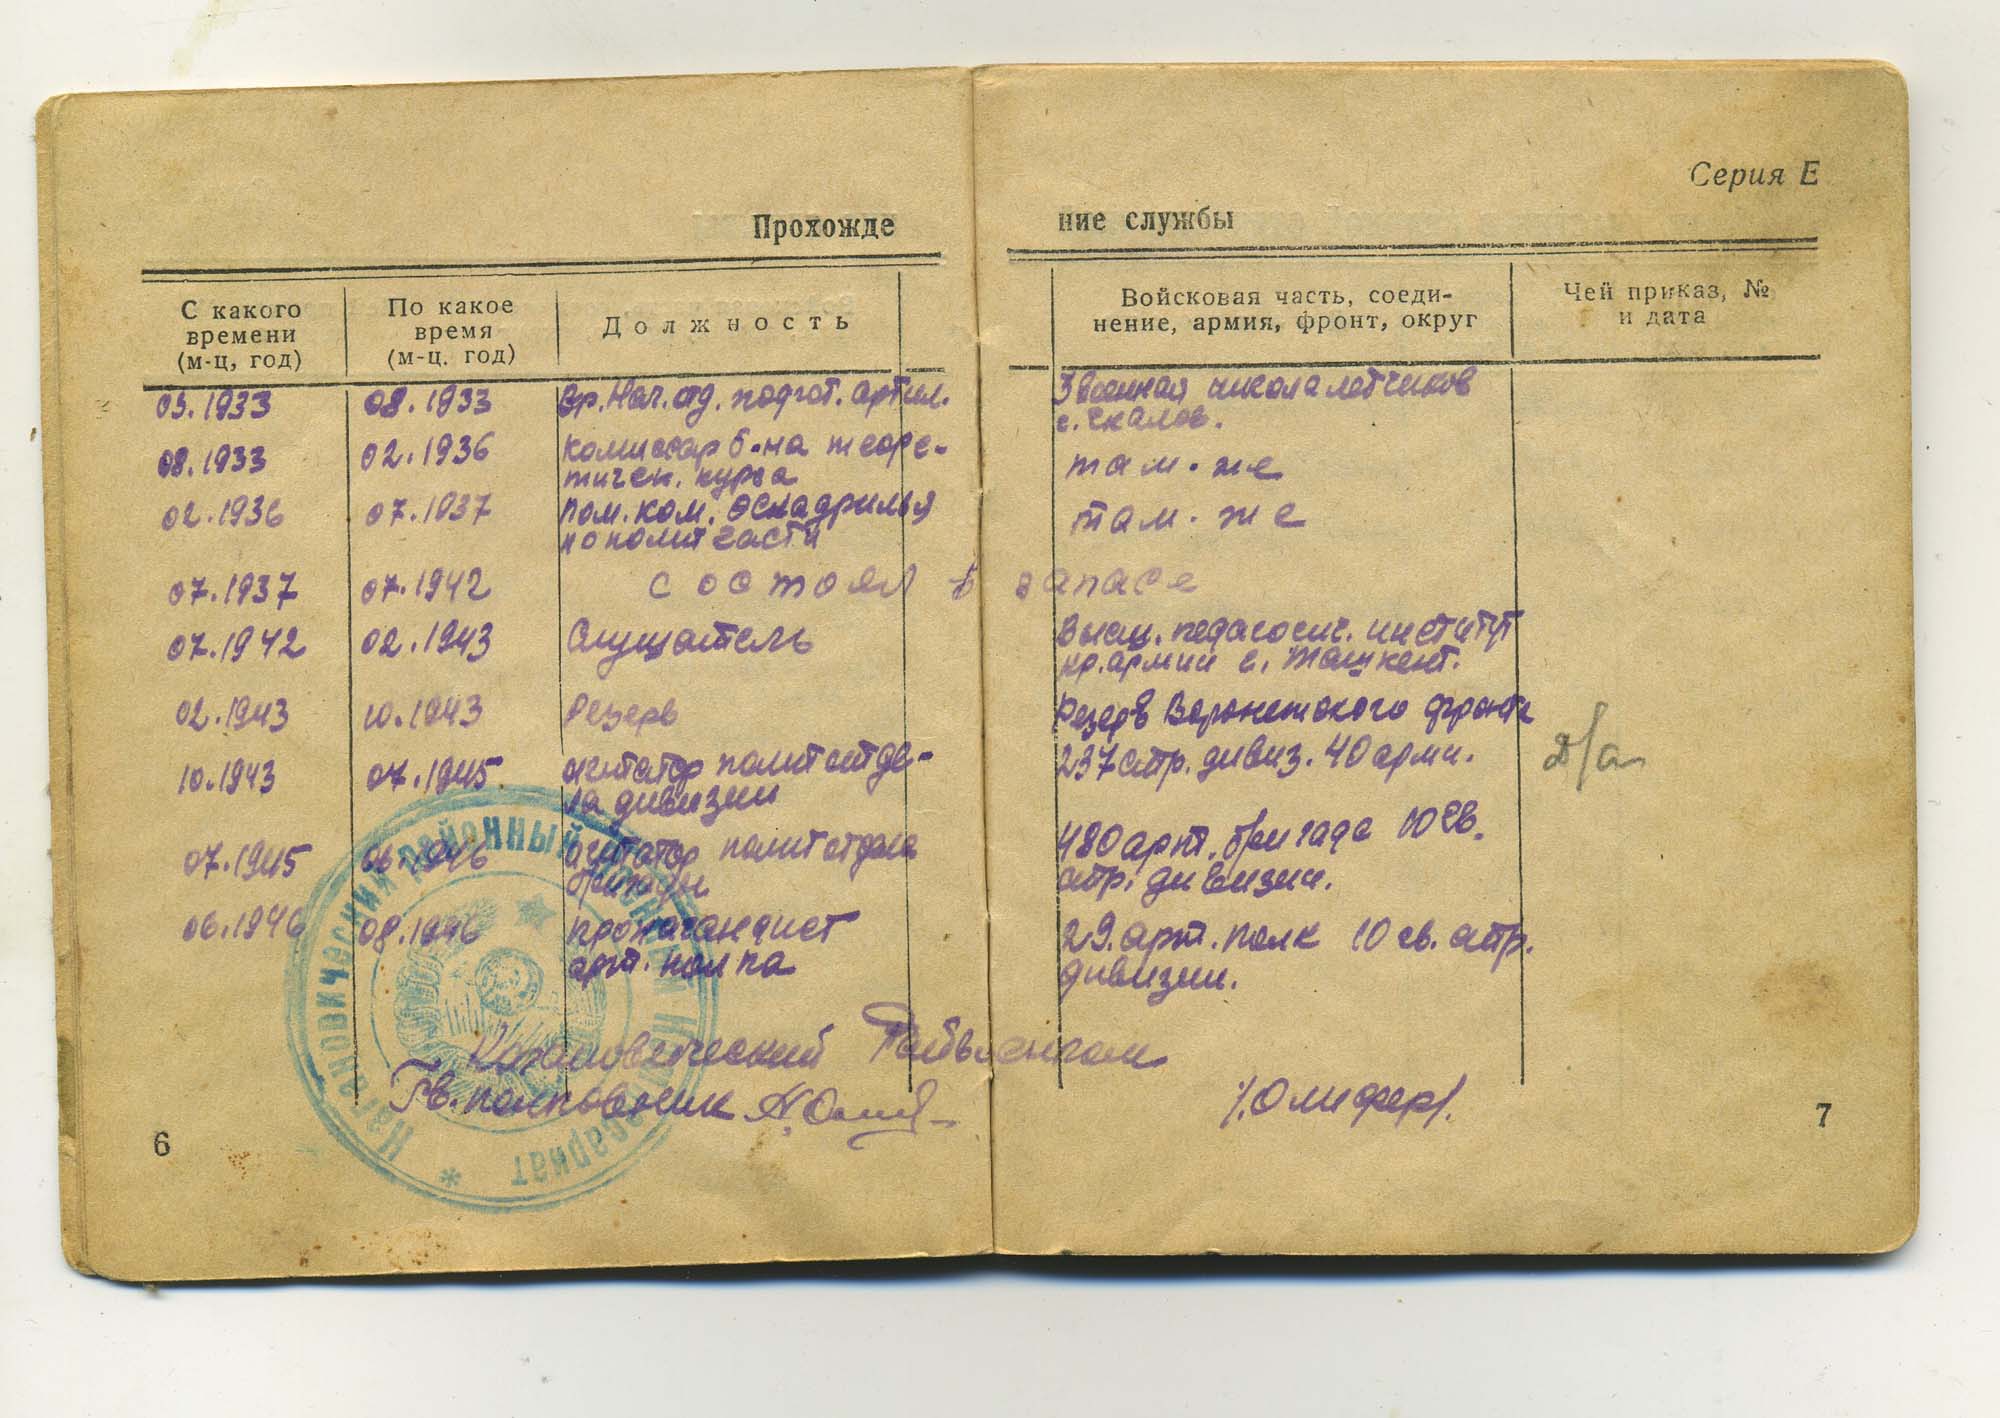 Серия Е
Прохождение службы
С какого времени (м-ц, год)
По какое время (м-ц. год)
Должность
Войсковая часть, соеди-
нение, армия, фронт, округ
Чей приказ, №
и дата
03.1933 08.1933 Вр. Нач. отд. подгот. артил. 3 военная школа летчиков
г. Чкалов.
08.1933 02.1936 Комиссар б-на теоре- там-же
тичен. курса
02.1936 07.1937 Пом. ком. эскадрилья там-же
по политчасти
07.1937 07.1942 состоял в запасе
07.1942 02.1943 Слушатель Высш. педагогич. институт
кр. армии г. Ташкент.
02.1943 10.1943 Резерв Резерв Воронежского фронта
10.1943 07.1945 агитатор политотде- 237 стр. дивиз. 40 арми.
ла дивизии
07.1945 06.1946 агитатор политотдела 480 арт. бригада 10 гв.
бригады стр. дивизии.
06.1946 08.1946 пропагандист 29. арт. полк 10 гв. стр.
арт. полка дивизии.
Кагановический Райвоенком
Гв. полковник /Олифер/.
Кагановический районный военный комиссариат
6
7